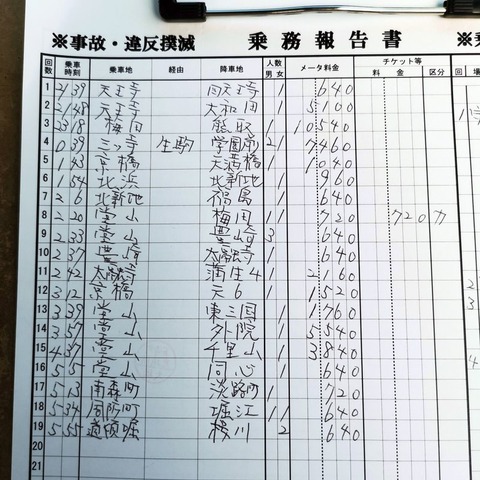 ※事故・違反撲滅 乗務報告書 ※
回数 乗車時刻 乗車地 経由 降車地 人数 男 女 メータ料金 チケット等 料金 区分 回
1 2139 天王寺 1 640
2 2148 天王寺 大和田 1 5100
3 2318 梅田 熊取 1 10540
4 039 三ッ寺 生駒 学園前 21 7460
5 143 京橋 天満橋 1 1040
6 154 北浜 北新地 1 960
7 26 北新地 福島 1 640
8 220 堂山 梅田 11 720 720 カ
9 233 堂山 豊崎 3 640
10 237 豊崎 太融寺 1 640
11 242 太融寺 蒲生4 1 2160
12 312 京橋 天6 1 1520
13 339 堂山 東三国 11 1760
14 357 堂山 外院 1 5540
15 437 堂山 千里山 1 3840
16 55 堂山 同心 1 640
17 513 南森町 淡路町 1 720
18 534 周防町 堀江 11 640
19 555 道頓堀 桜川 2 640
20
21